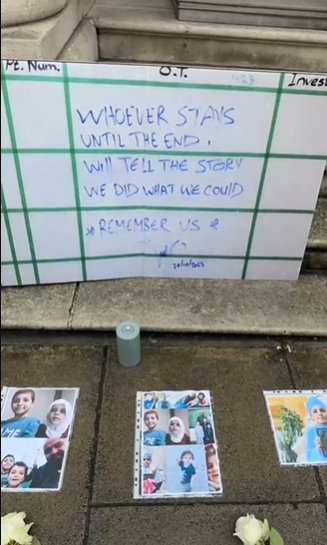 Pt. Num. O.T. Invest
WHOEVER STAYS
UNTIL THE END.
WILL TELL THE STORY
WE DID WHAT WE COULD
REMEMBER US
20/10/2023